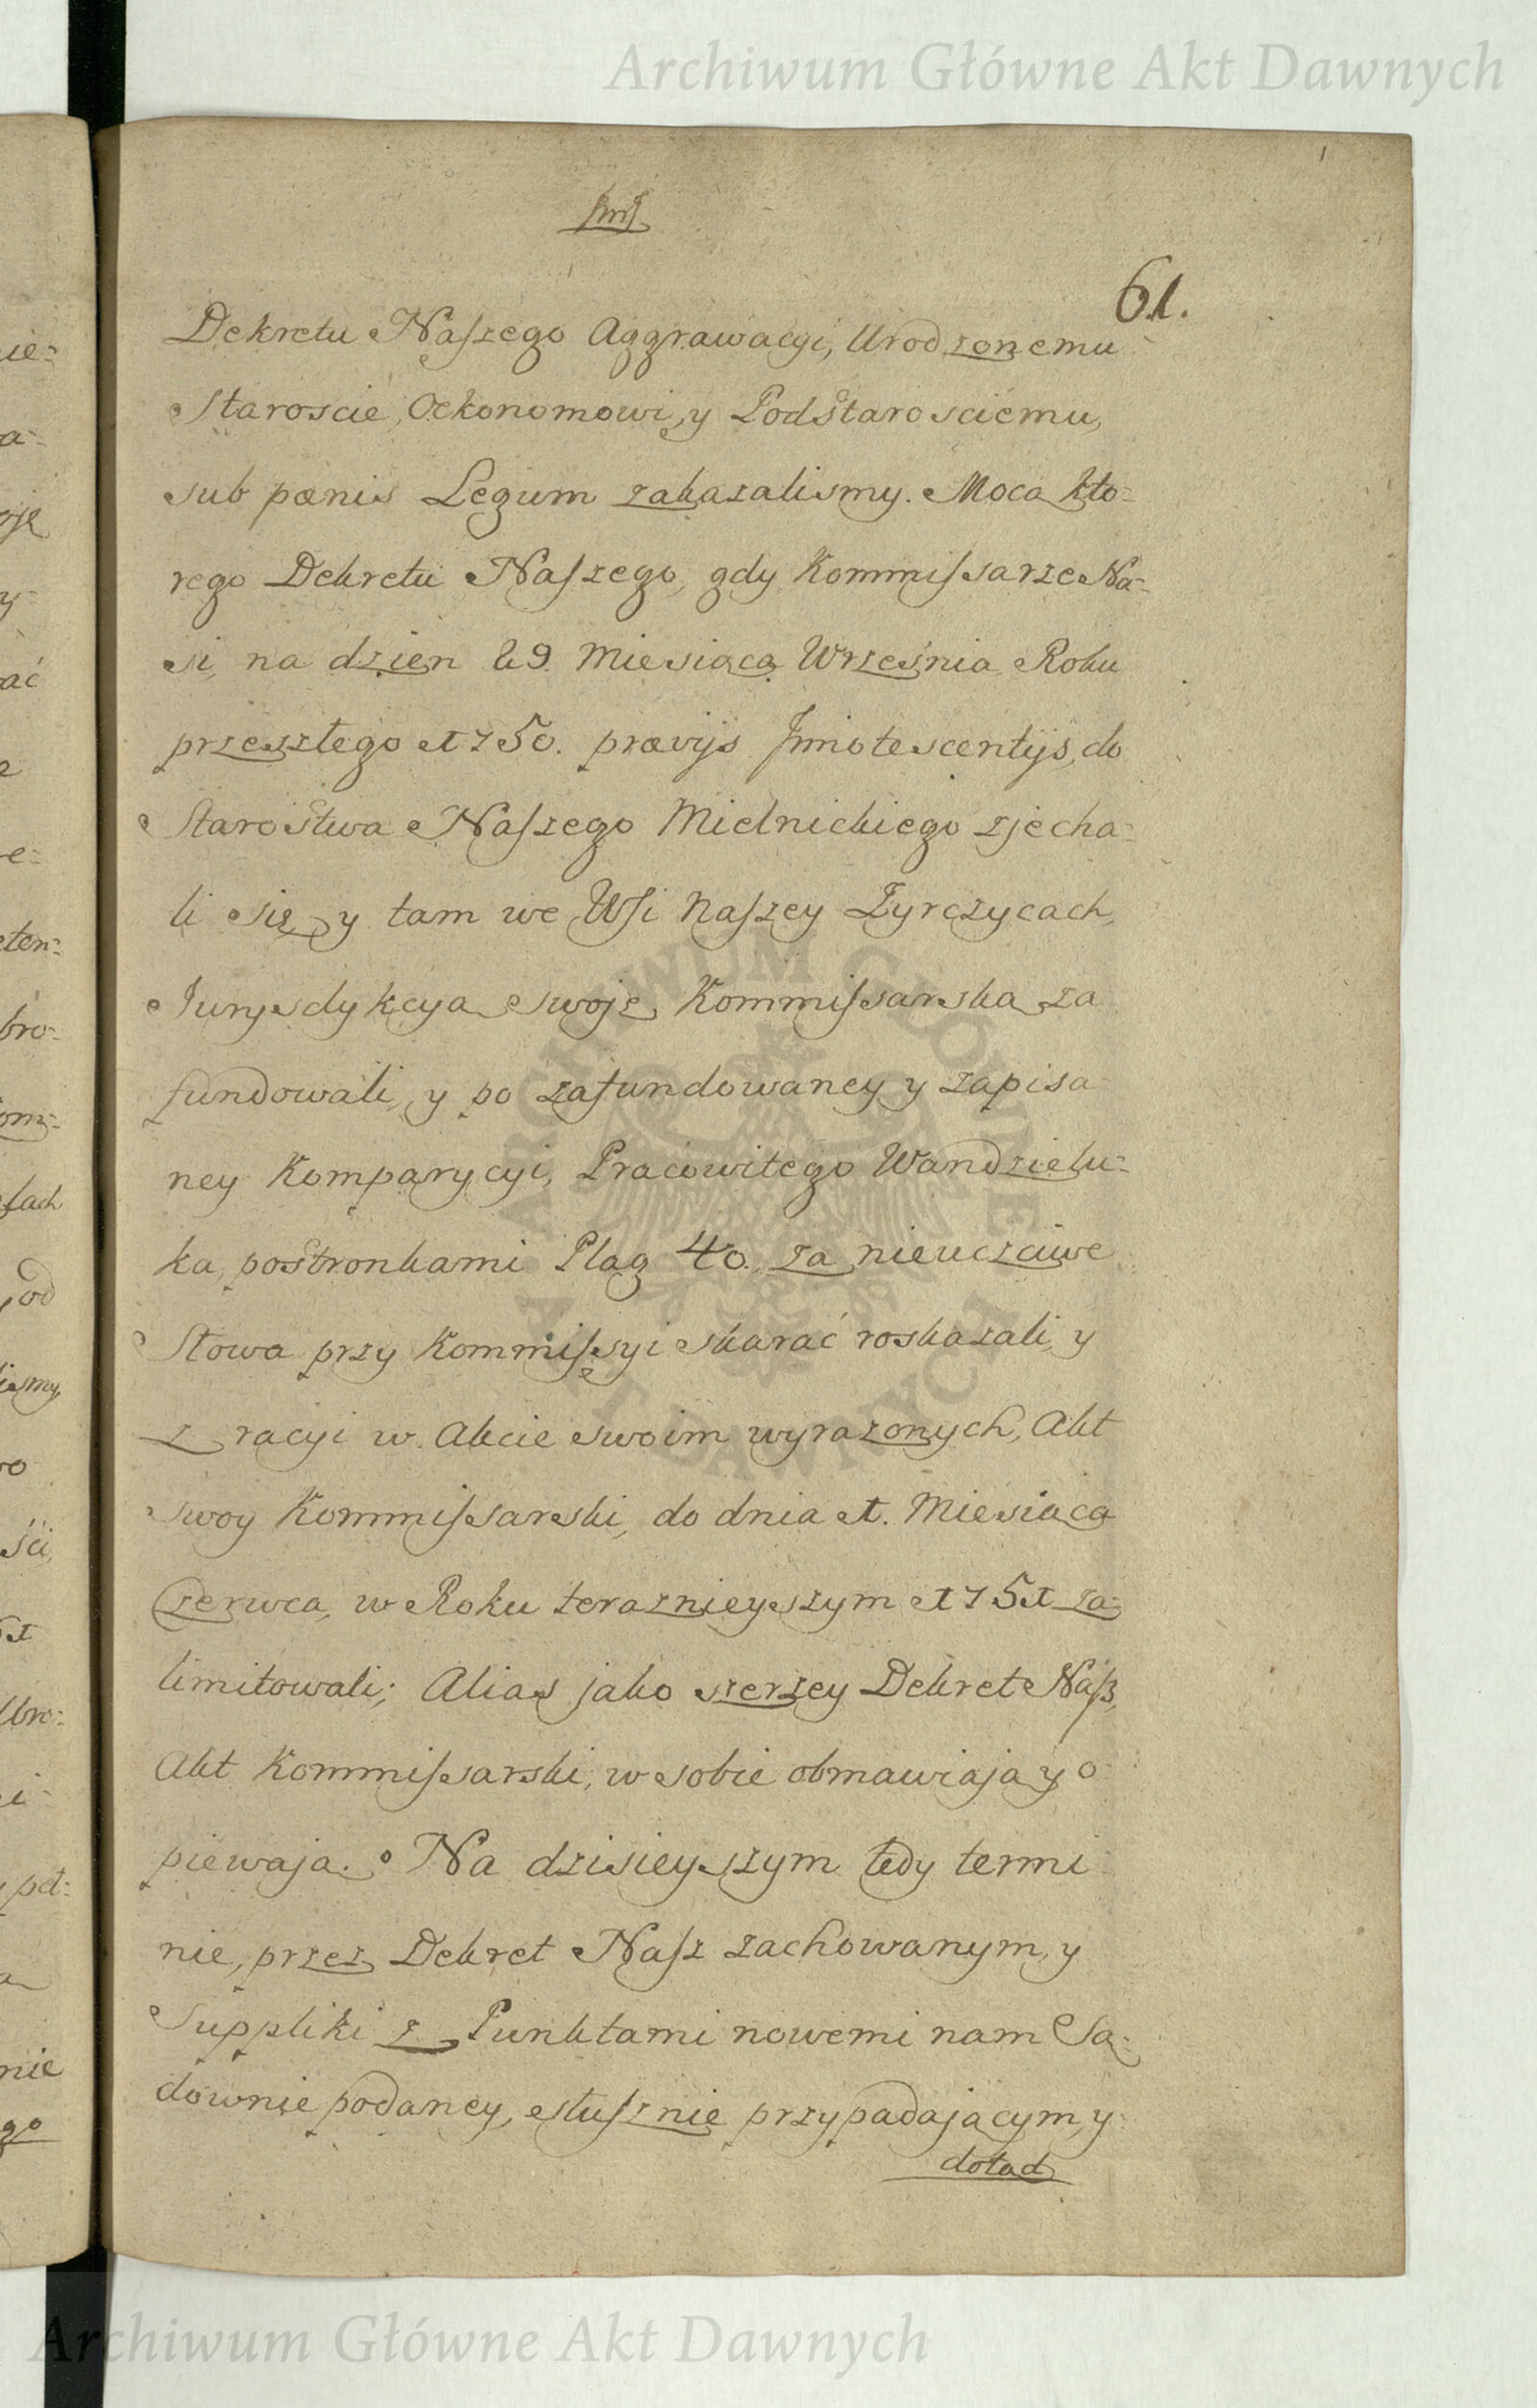 Archiwum Główne Akt Dawnych
61.
Dekretu Naszego Aggrawacyi, Urodzonemu
Staroscie, Oekonomowi, y Podstarosciemu,
sub pænis Legum zakazalismy. Moca kto=
rego Dekretu Naszego, gdy Kommissarze Na=
si, na dzien 29. Miesiąca Września Roku
przeszłego 1750. prævijs Jnnotescentijs, do
Starostwa Naszego Mielnickiego zjecha=
li się, y tam we Wsi Naszey Zyrczycach,
Jurysdykcyą swoję Kommissarską za
fundowali, y po zafundowaney y zapisa
ney Komparycyi, Pracowitego Wandzielu=
ka, postronkami Plag 40. za nieuczciwe
Słowa przy Kommissyi skarać roskazali, y
z racyi w Akcie swoim wyrazonych, Akt
swoy Kommissarski, do dnia 1. Miesiąca
Czerwca, w Roku teraznieyszym 1751 za=
limitowali; Alias jako szerzey Dekret Nasz,
Akt Kommissarski, w sobie obmawiają y o
piewają. Na dzisieyszym tedy termi
nie, przez Dekret Nasz zachowanym, y
Suppliki z Punktami nowemi nam Sa=
downie podaney, słusznie przypadającym, y
dotąd
Archiwum Główne Akt Dawnych